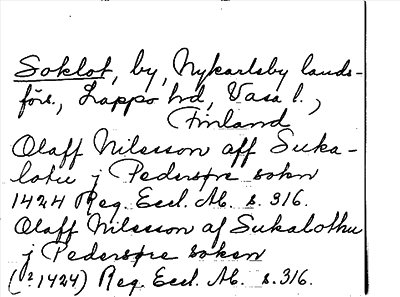 Soklot, by, Nykarleby lands-
förs., Lappo hd, Vasa l.,
Finland
Olaff Nilsson aff Suka-
lotu j Pedersøre sokn
1424 Reg. Eccl. Ab. s. 316.
Olaff Nilsson af Sukalothu
j Pedersøre soken
(12 1424) Reg. Eccl. Ab. s. 316.